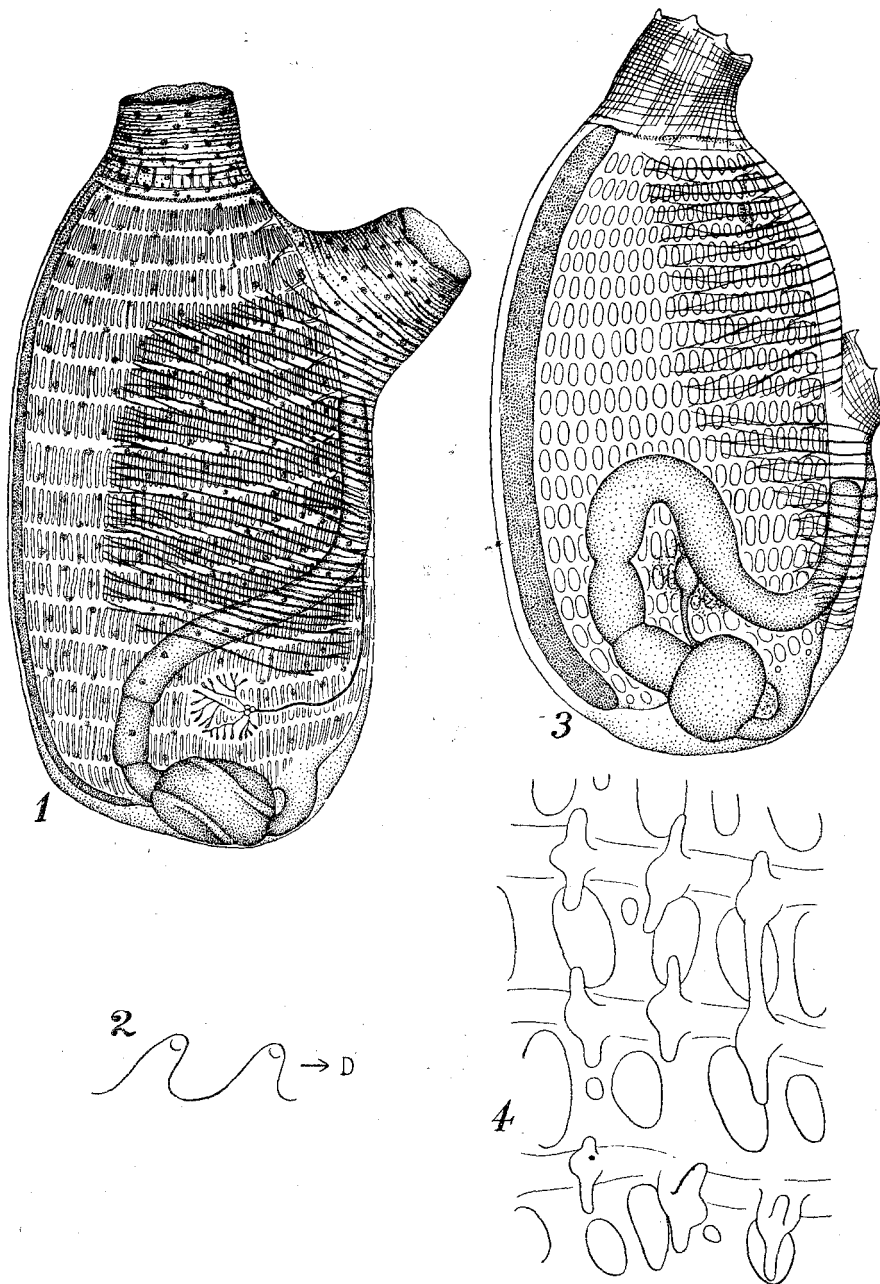 1
3
2
→ D
4